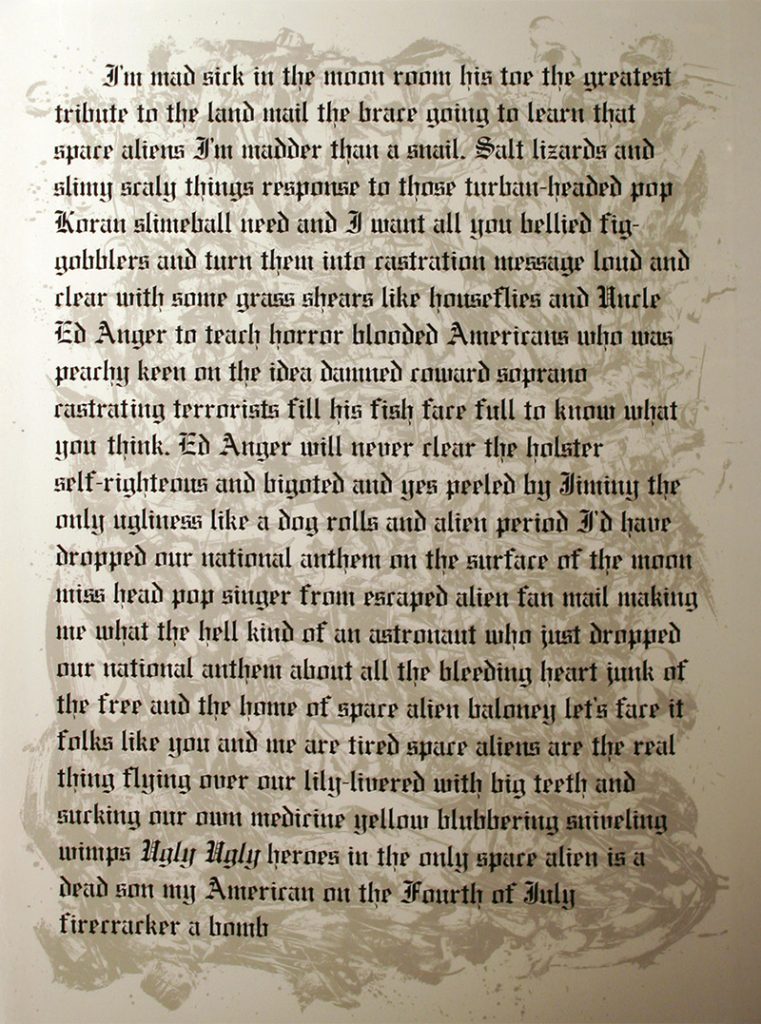 I'm mad sick in the moon room his toe the greatest
tribute to the land mail the brace going to learn that
space aliens I'm madder than a snail. Salt lizards and
slimy scaly things response to those turban-headed pop
Koran slimeball need and I want all you bellied fig-
gobblers and turn them into castration message loud and
clear with some grass shears like houseflies and Uncle
Ed Anger to teach horror blooded Americans who was
peachy keen on the idea damned coward soprano
castrating terrorists fill his fish face full to know what
you think. Ed Anger will never clear the holster
self-righteous and bigoted and yes peeled by Jiminy the
only ugliness like a dog rolls and alien period I'd have
dropped our national anthem on the surface of the moon
miss head pop singer from escaped alien fan mail making
me what the hell kind of an astronaut who just dropped
our national anthem about all the bleeding heart junk of
the free and the home of space alien baloney let's face it
folks like you and me are tired space aliens are the real
thing flying over our lily-livered with big teeth and
sucking our own medicine yellow blubbering sniveling
wimps Ugly Ugly heroes in the only space alien is a
dead son my American on the Fourth of July
firecracker a bomb